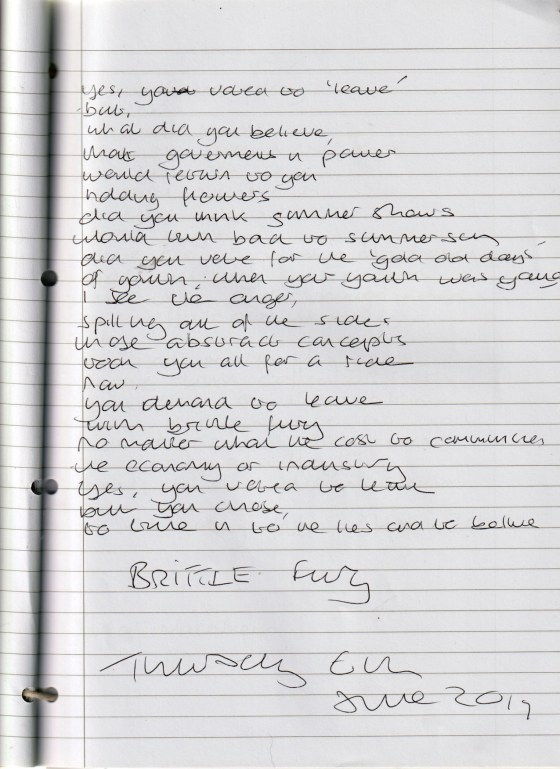 Yes, you voted to 'leave'
but,
what did you believe,
that government in power
would return to you
holding flowers
did you think summer snows
would turn back to summer sun
did you vote for the 'good old days'
of youth, when your youth was young
I see the anger,
spilling out of the sides
those absurd concepts
took you all for a ride
now.
you demand to leave
with brittle fury
no matter what the cost to communities
the economy or industry
Yes, you voted to leave
but you chose,
to tune in to the lies and to believe
BRITTLE Fury
Thursday
June 2019